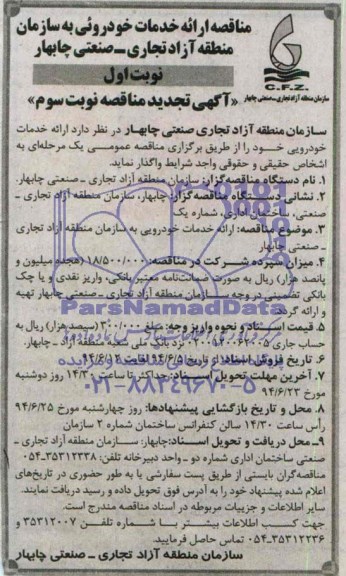 مناقصه ارائه خدمات خودروئی به سازمان
منطقه آزاد تجاری ـ صنعتی چابهار
نوبت اول
«آگهی تجدید مناقصه نوبت سوم»
C.F.Z.
سازمان منطقه آزاد تجاری-صنعتی چابهار
سازمان منطقه آزاد تجاری صنعتی چابهار در نظر دارد ارائه خدمات
خودرویی خود را از طریق برگزاری مناقصه عمومی یک مرحله‌ای به
اشخاص حقیقی و حقوقی واجد شرایط واگذار نماید.
۱. نام دستگاه مناقصه‌گزار: سازمان منطقه آزاد تجاری ـ صنعتی چابهار.
۲. نشانی دستگاه مناقصه‌گزار: چابهار، سازمان منطقه آزاد تجاری ـ
صنعتی، ساختمان اداری، شماره یک
۳. موضوع مناقصه: ارائه خدمات خودرویی به سازمان منطقه آزاد تجاری
ـ صنعتی چابهار
۴. میزان سپرده شرکت در مناقصه: ۱۸/۵۰۰/۰۰۰ (هجده میلیون و
پانصد هزار) ریال به صورت ضمانت‌نامه معتبر بانکی، واریز نقدی و یا چک
بانکی تضمینی در وجه سازمان منطقه آزاد تجاری ـ صنعتی چابهار تهیه
و ارائه گردد.
۵. قیمت اسناد و نحوه واریز وجه: مبلغ ۳۰۰/۰۰۰ (سیصد هزار) ریال به
حساب جاری نزد بانک ملی شعبه منطقه آزاد ـ چابهار.
۶. تاریخ فروش اسناد: از تاریخ ۹۴/۶/۵ لغایت ۹۴/۶/۱۲
۷. آخرین مهلت تحویل اسناد: حداکثر تا ساعت ۱۴/۳۰ روز دوشنبه
مورخ ۹۴/۶/۲۳
۸. محل و تاریخ بازگشایی پیشنهادها: روز چهارشنبه مورخ ۹۴/۶/۲۵
رأس ساعت ۱۴/۳۰ سالن کنفرانس ساختمان شماره ۲ سازمان
۹ـ محل دریافت و تحویل اسناد: چابهار: سازمان منطقه آزاد تجاری ـ
صنعتی ساختمان اداری شماره دو ـ واحد دبیرخانه تلفن: ۳۵۳۱۲۳۳۸-۰۵۴
مناقصه‌گران بایستی از طریق پست سفارشی یا به طور حضوری در تاریخ‌های
اعلام شده پیشنهاد خود را به آدرس فوق تحویل داده و رسید دریافت نمایند.
سایر اطلاعات و جزییات مربوطه در اسناد مناقصه مندرج است.
جهت کسب اطلاعات بیشتر با شماره تلفن ۳۵۳۱۲۰۰۷ و
۳۵۳۱۲۲۳۶-۰۵۴ تماس حاصل فرمایید.
سازمان منطقه آزاد تجاری ـ صنعتی چابهار
ParsNamadData
۰۲۱-۸۸۳۴۹۶۷۰-۵